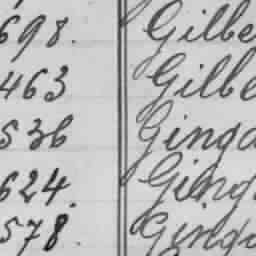 698. Gilbe
463 Gilbe
536 Ginga
624. Ging
578. Ginga